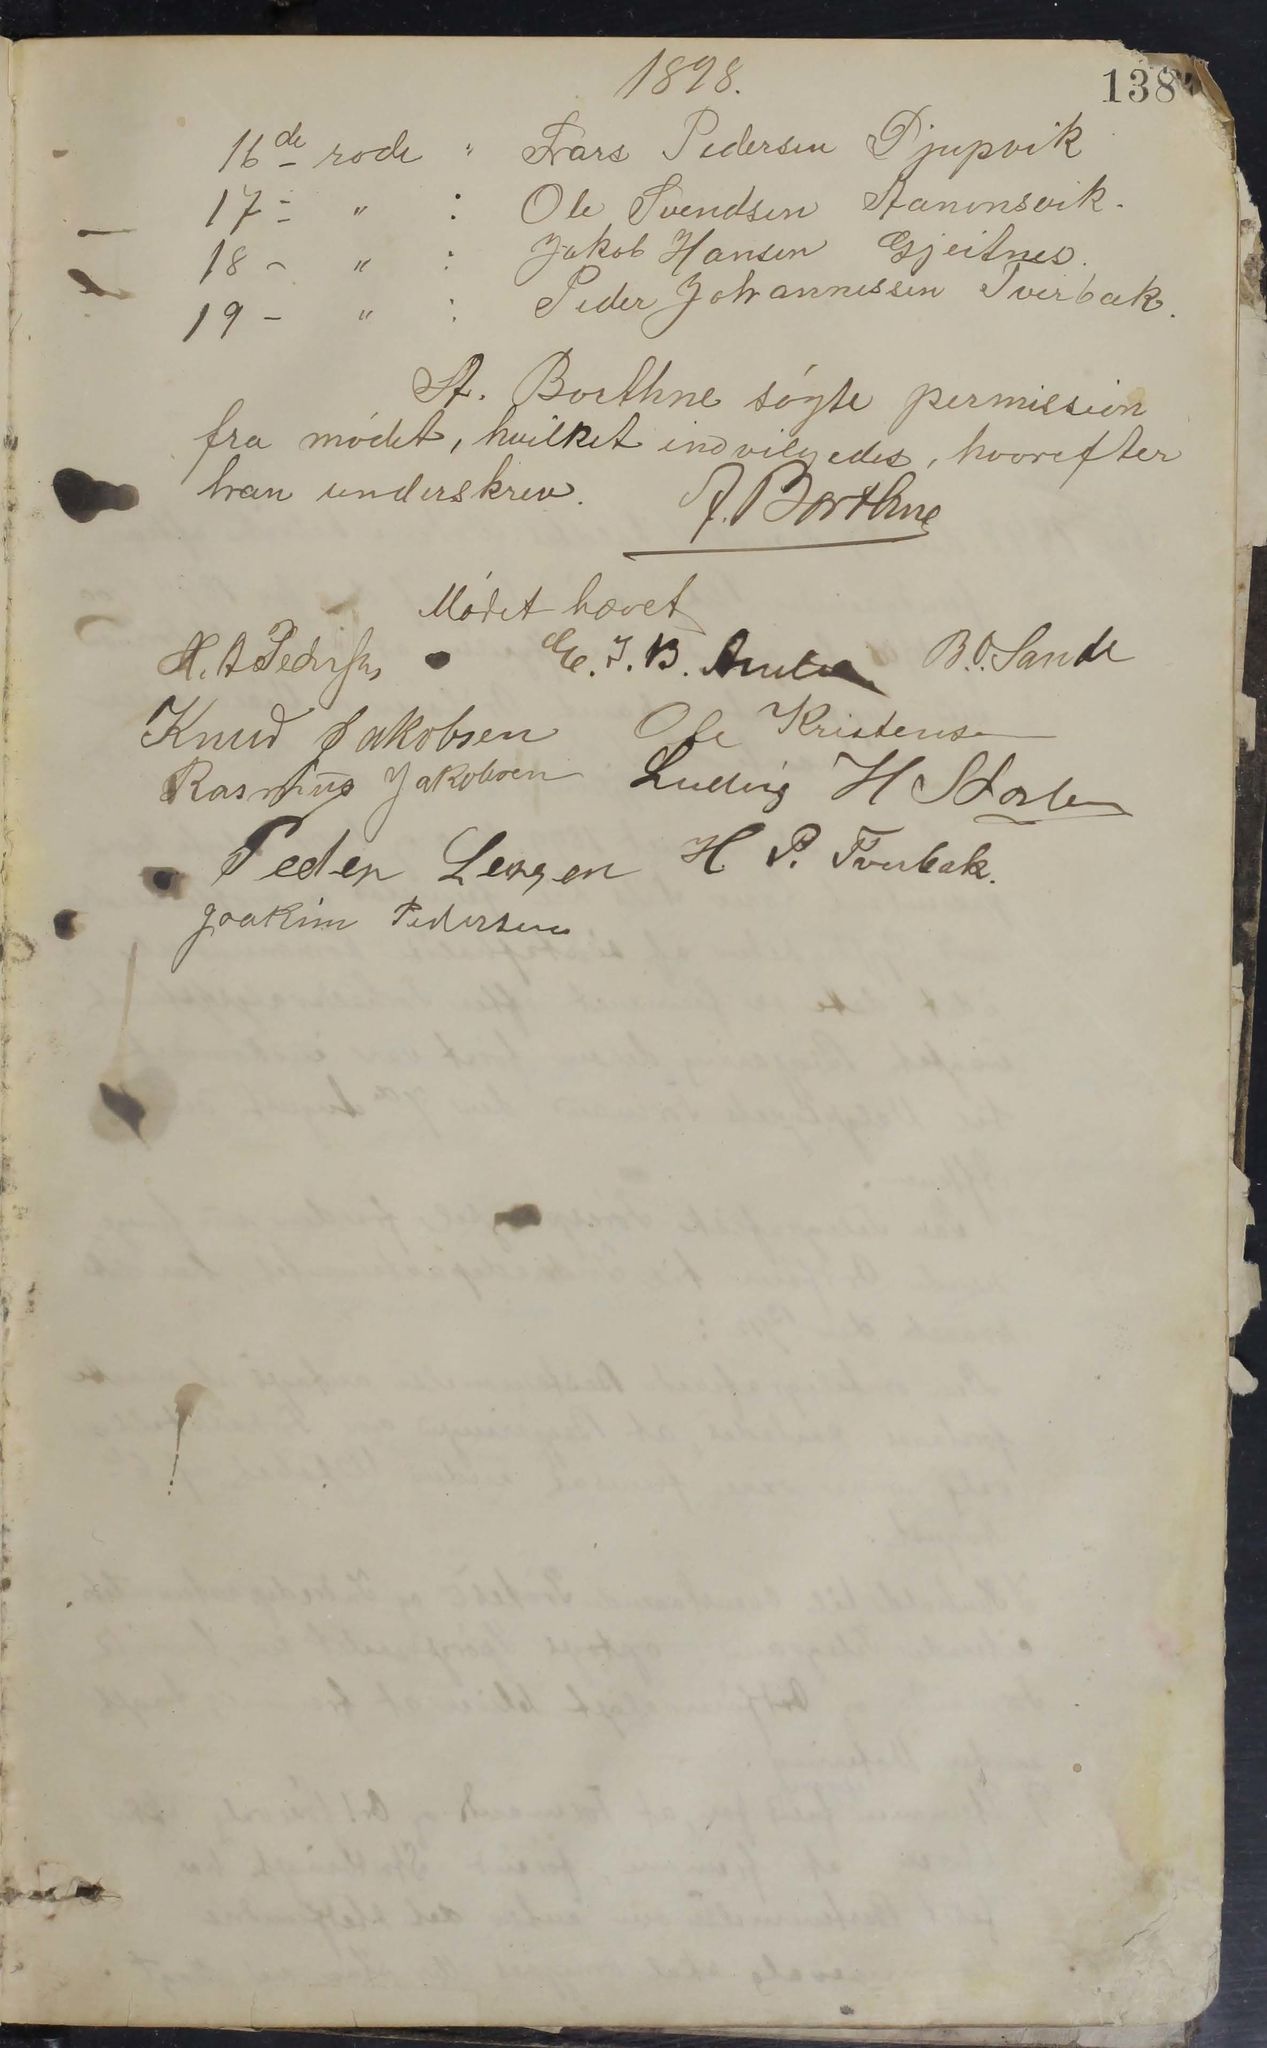 1898.
138
16de rode " Lars Pedersen Djupvik
17 - " : Ole Svendsen
18 - " : Jakob Hansen Gjeitnes.
19 - " : Peder Johannessen Tverbak.
A. Borthne søgte permission
fra mødet, hvilket indvilgedes, hvorefter
han underskrev. A. Borthne
Mødet hævet
H. A Pedersen E. J. B. B. O. Sande
Knud Jakobsen Ole Kristensen
Rasmus Jakobsen Ludvig H
Peder Larsen H. P. Tverbak.
Joakim Pedersen